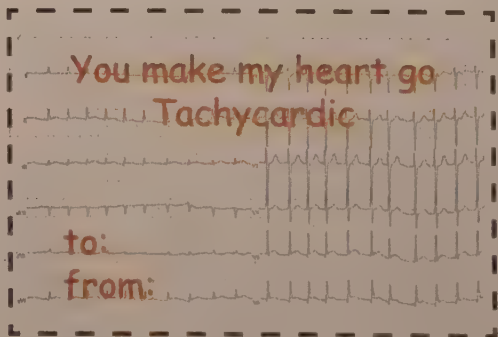 You make my heart go
Tachycardic
to:
from: